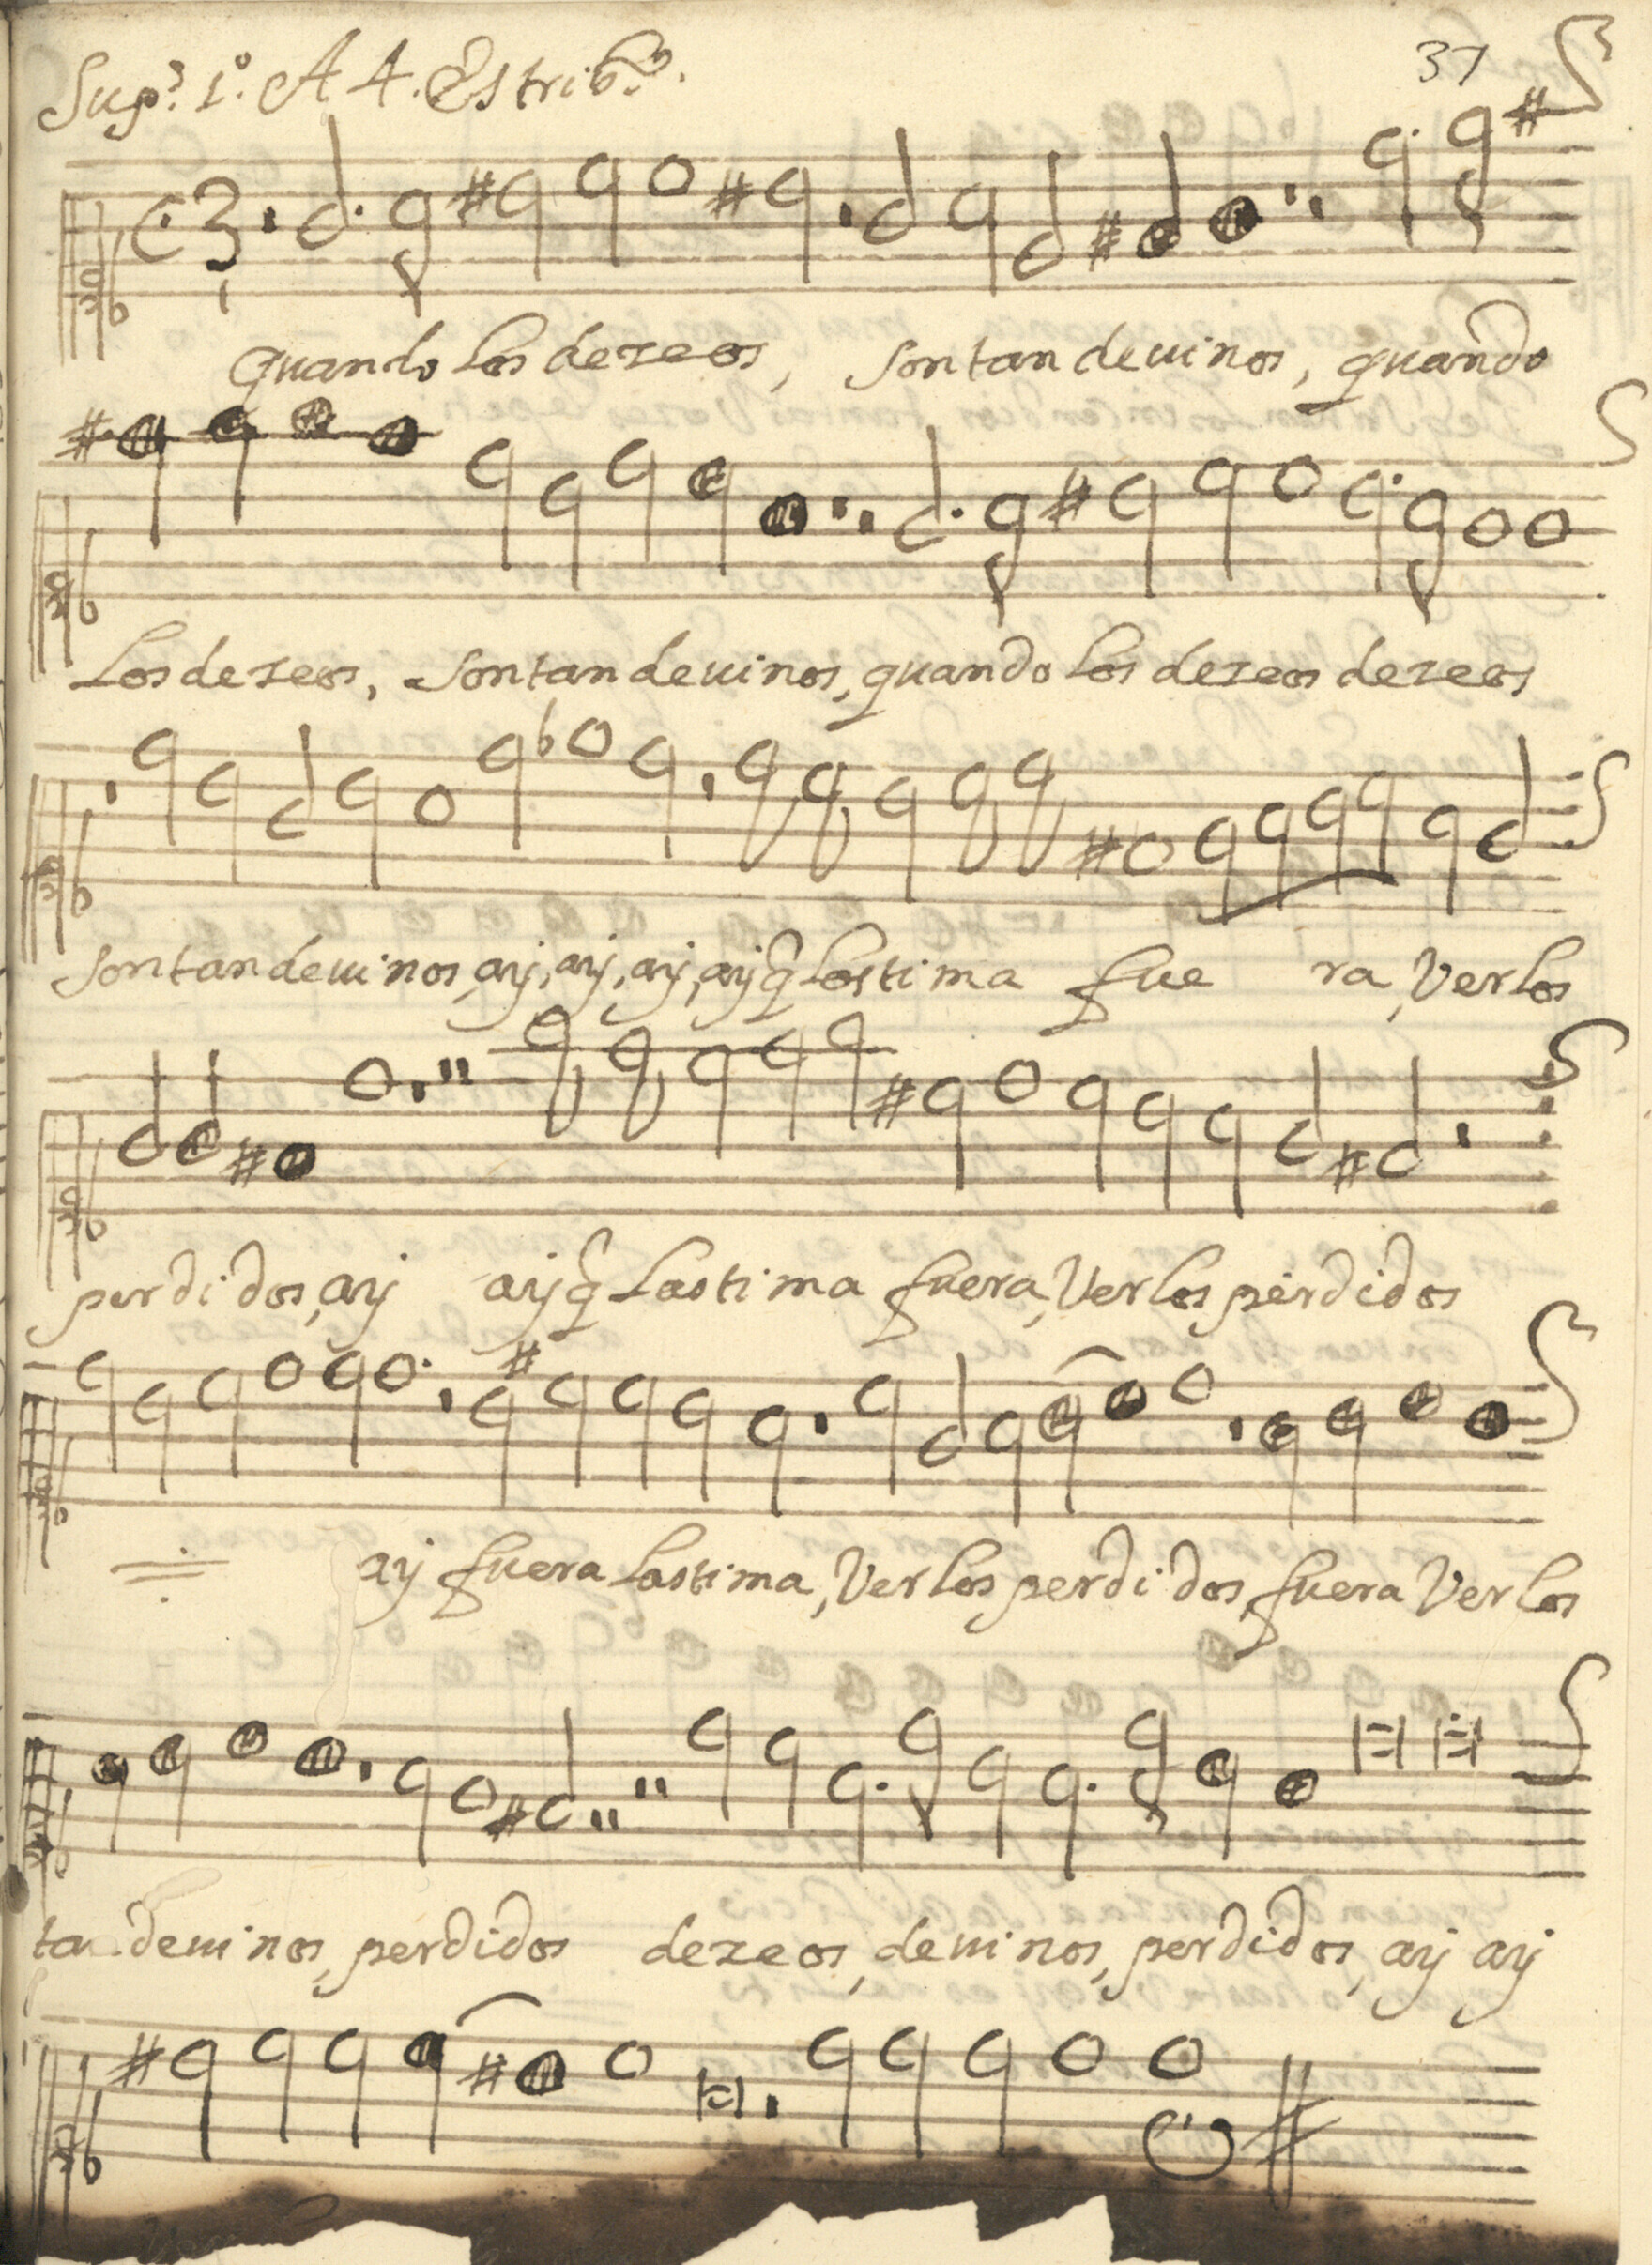 Sup.º 1.º A 4. Estrib.º
37
quando los dezeos, son tan deuinos, quando
los dezeos, son tan deuinos, quando los dezeos dezeos
son tan deuinos, ay, ay, ay, ay q̃ lastima fue ra, Verlos
perdidos, ay ay q̃ lastima fuera, Ver los perdidos
ay fuera lastima, Ver los perdidos, fuera Ver los
tan deuinos, perdidos dezeos, deuinos, perdidos, ay ay